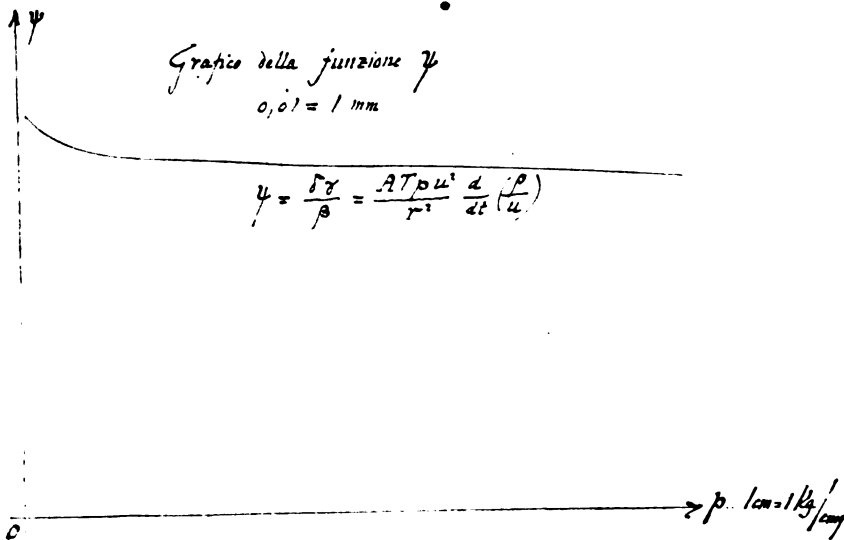 ψ
Grafico della funzione ψ
0,01 = 1 mm
ψ = δγ/β = ATpu²/r² d/dt (p/u)
0
p. 1cm=1Kg/cmq